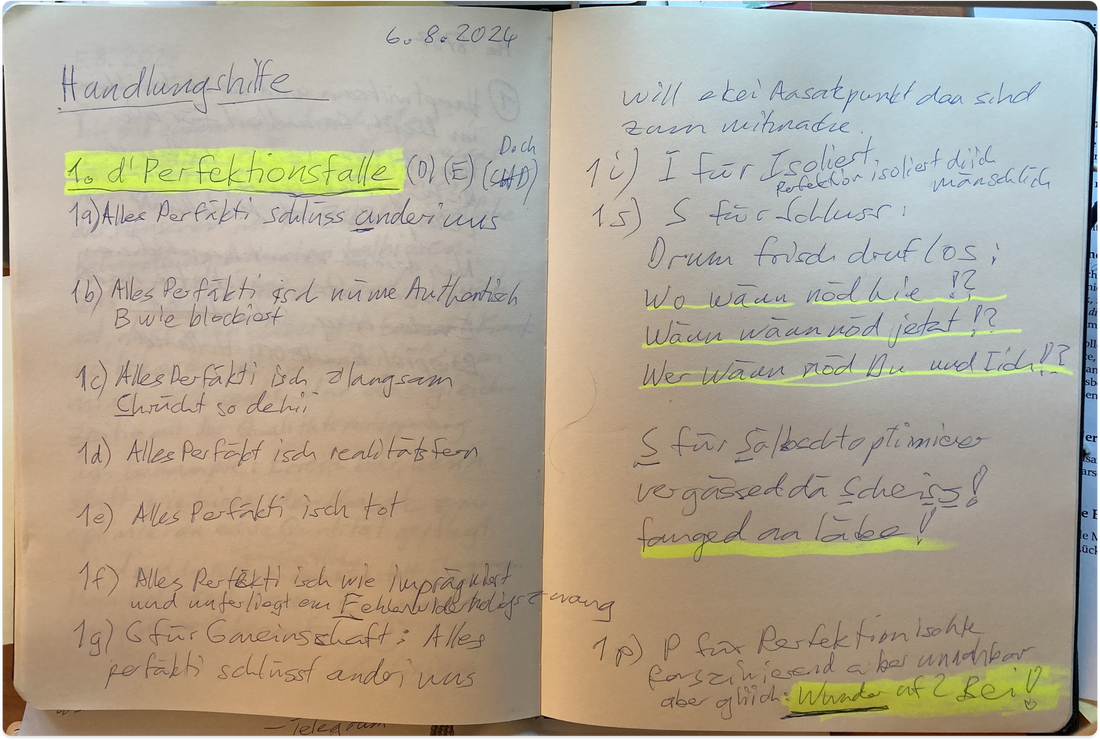 6. 8. 2024
Handlungshilfe
Doch
1. d'Perfektionsfalle (D) (E) (CHD)
1a) Alles Perfäkti schlüss anderi uus
1b) Alles Perfäkti isch nüme Authentisch
B wie blockiert
1c) Alles Perfäkti isch z langsam
Chrücht so dehii
1d) Alles Perfäkt isch realitätsfern
1e) Alles Perfäkti isch tot
1f) Alles Perfäkti isch wie imprägniert
und unterliegt em Fehlerwiderholigszwang
1g) G für Gmeinsschaft: Alles
perfäkti schlüsst anderi uus
will ekei Aasatzpunkt daa sind
zum mitmache.
1i) I für Isoliert
Perfektion isoliert diich
mänschlich
1s) S für Schluss:
Drum frisch druf los:
Wo wänn nöd hie !?
Wänn wänn nöd jetzt !?
Wer wänn nöd Du und Iich !?
S für Sälbschtoptimierer
vergässed dä Scheiss!
fanged aa läbe!
1p) P für Perfektionischte
faszinierend aber unnahbar
aber gliich: Wunder uf 2 Bei!
- Telegram